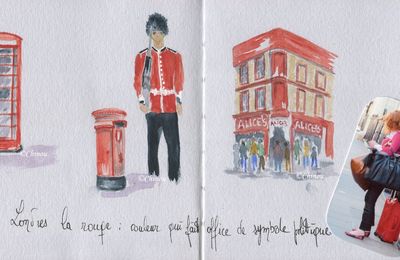 ALICE'S ALICE'S ALICE'S
©Chinou
©Chinou
©Chinou
Londres la rouge : couleur qui fait office de symbole politique